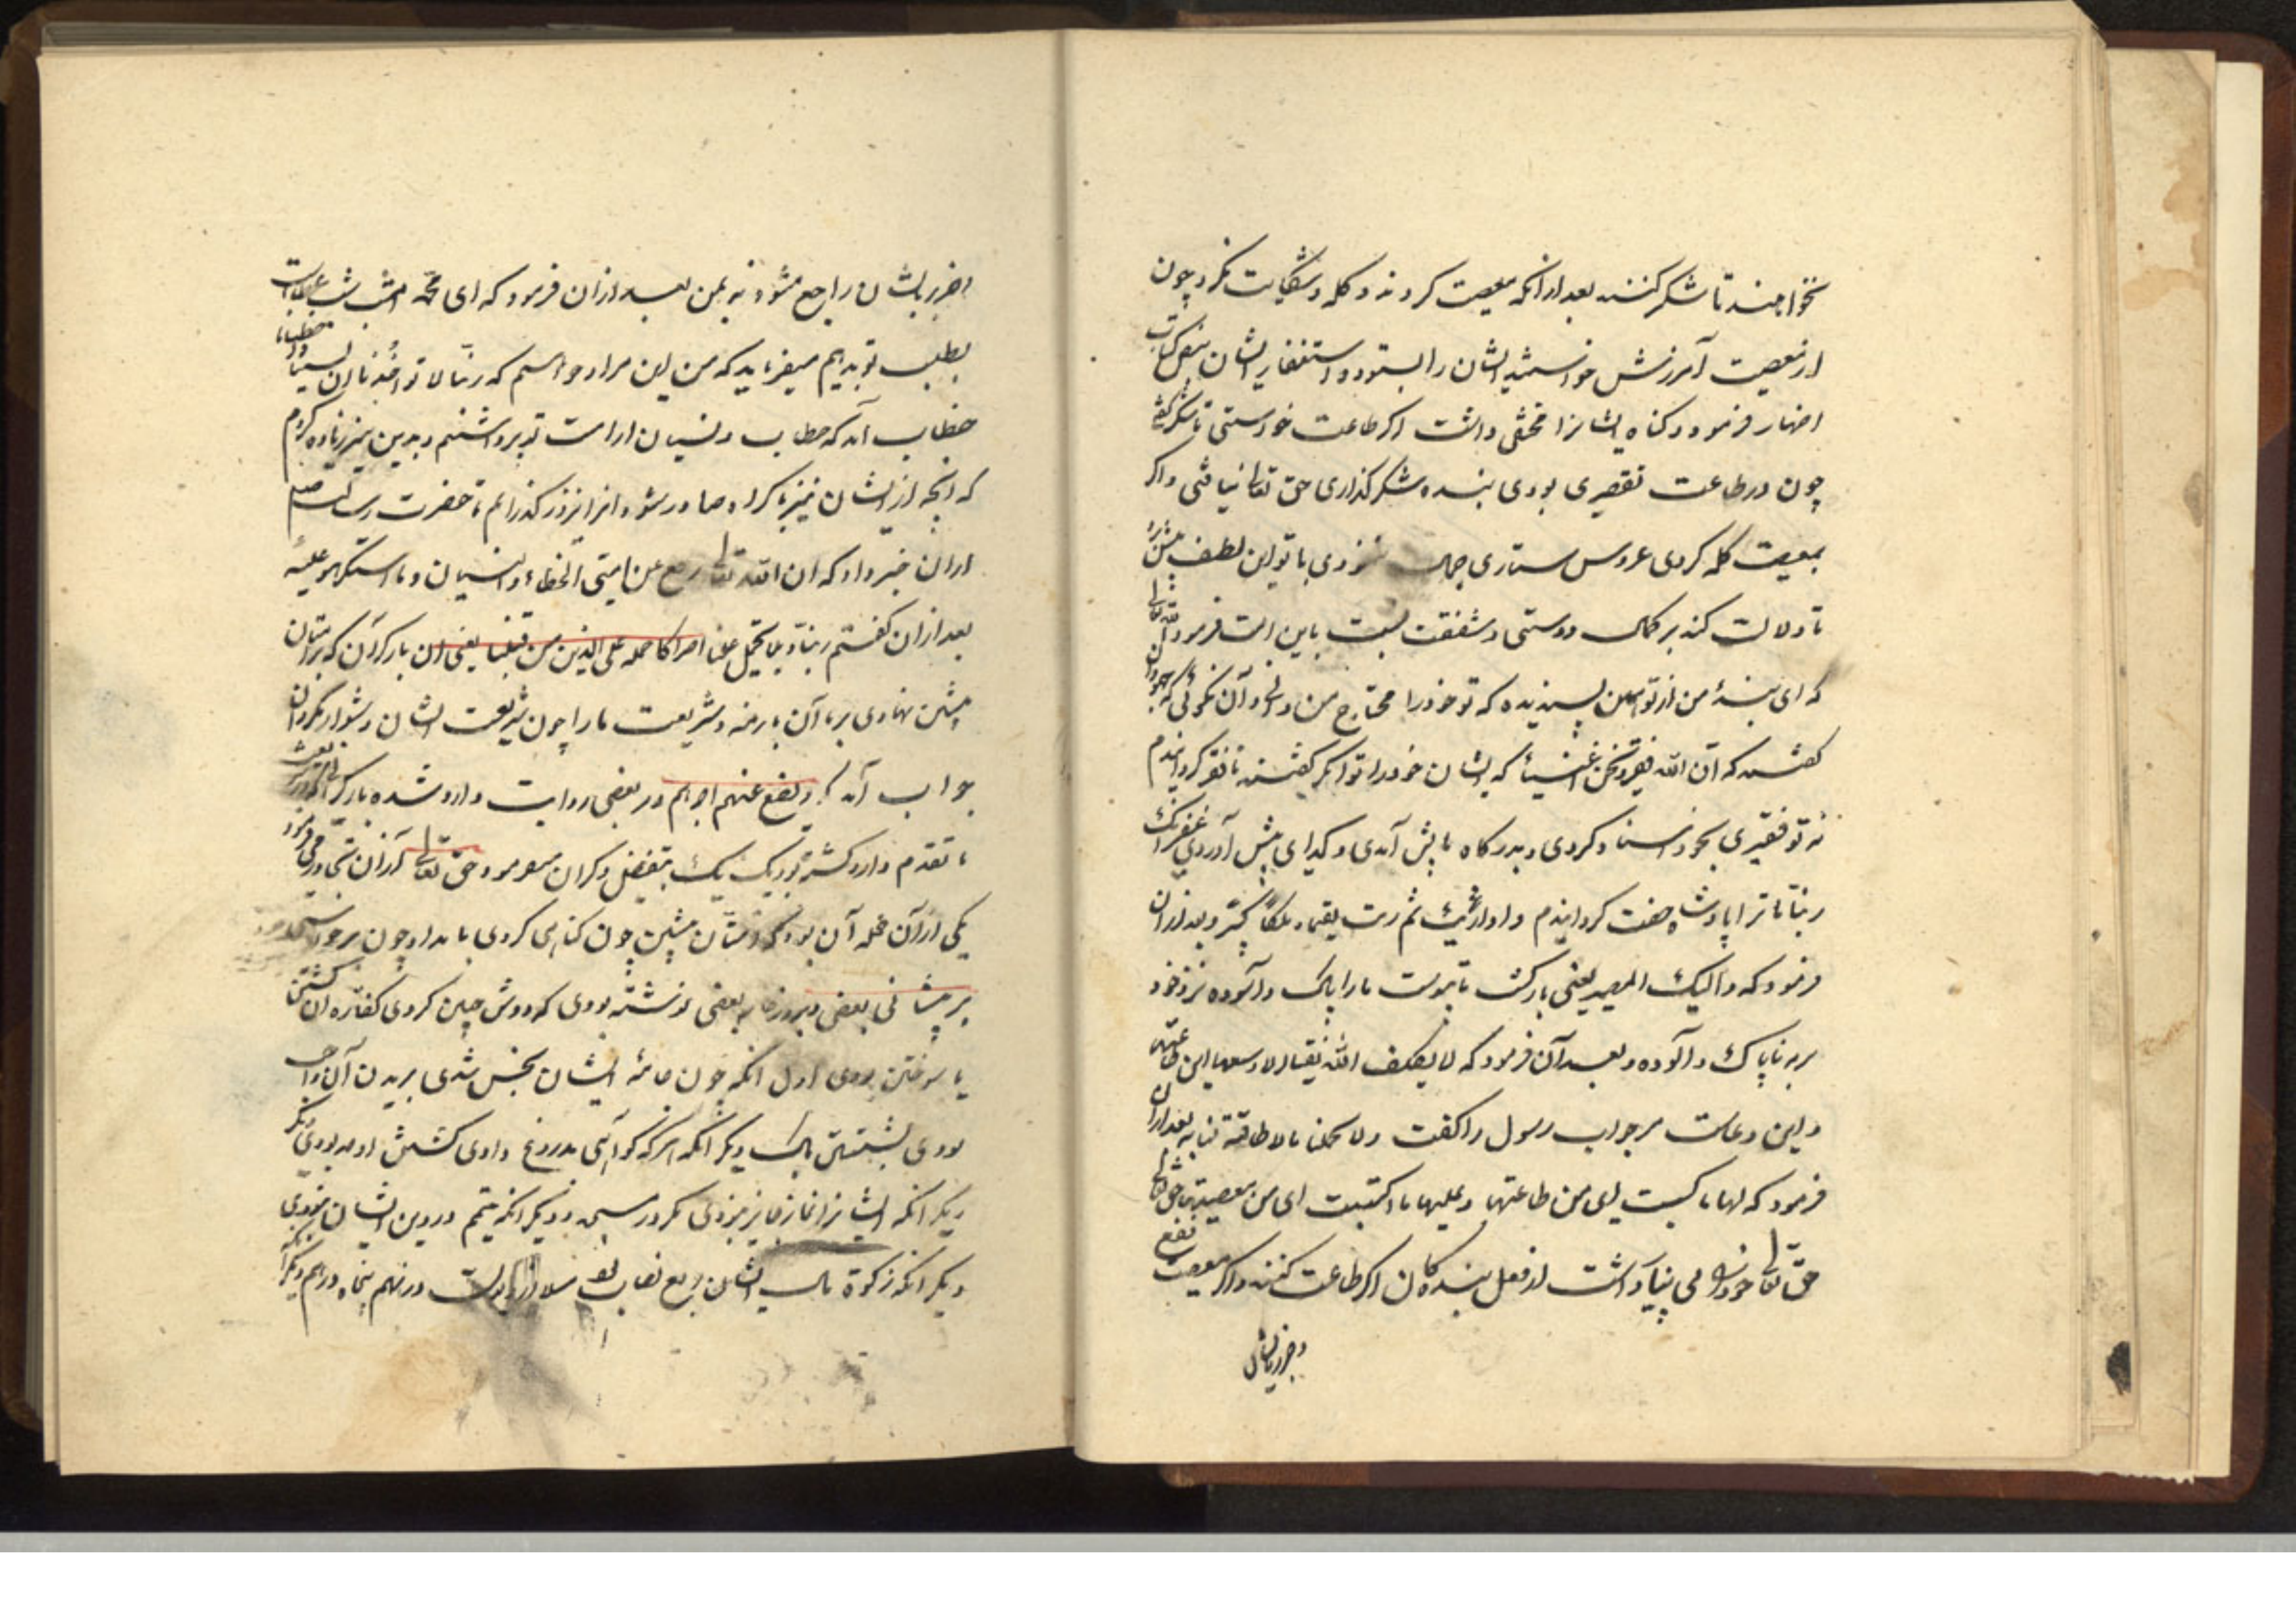 نخواهند تا شکر کنند بعد از انکه معصیت کردند و کله و شکایت نکرد چون
از معصیت آمرزش خواستند ایشان را بستود و استغفار ایشان بنص کتاب
اظهار فرمود و کناه ایشانرا مخفی داشت اکر طاعت خواستی تا شکر
چون در طاعت تقصیری بودی بنده شکر کذاری حق تعالی نیافتی و اکر
بمعصیت کله کردی عروس ستاری جمال ننمودی با تو این لطف
تا دلالت کند بر کمال دوستی و شفقت نسبت باین امت فرمود
که ای بنده من از تو این پسندیده که تو خود را محتاج من دانی و آن نکوئی که جهودان
کفتند که ان الله فقیر و نحن اغنیاء که ایشان خود را توانکر کفتند تا فقیر کردانیدم
نه تو فقیری بخود اسناد کردی و بدرکاه ما پیش آمدی و کدایی پیش آوردی غفرانک
ربنا تا ترا پادشاه صفت کردانیدم و اذا رایت ثم رایت نعیما و ملکا کبیرا و بعد از ان
فرمود که و الیک المصیر یعنی بازکشت ما بتوست ما را پاک و آلوده نزد خود
بر ناپاک و آلوده و بعد آن فرمود که لا یکلف الله نفسا الا وسعها ای طاقتها
و این دعاست مر جواب رسول را کفت و لا تحملنا ما لا طاقة لنا به بعد از ان
فرمود که لها ما کسبت ای من طاعتها و علیها ما اکتسبت ای من معصیتها حق تعالی
حق تعالی خود را می نیاز داشت از فعل بندکان اکر طاعت کنند و اکر معصیت نفع
و ضرر بایشان
و ضرر بایشان راجع شود نه بمن بعد از ان فرمود که ای محمد امشب شب عطاست
بطلب تو بدهیم میفرماید که من این مراد خواستم که ربنا لا تؤاخذنا ان نسینا او اخطأنا
خطاب آمد که خطا و نسیان از امت تو برداشتم و بدین نیز زیاده کردم
که آنچه از ایشان نیز باکراه صادر شود انرا نیز در کذرانم تا حضرت رسالت صلعم
از ان خبر داد که ان الله تعالی رفع عن امتی الخطاء و النسیان و ما استکرهوا علیه
بعد از ان کفتم ربنا و لا تحمل علینا اصرا کما حملته علی الذین من قبلنا یعنی ان بار کران که بر امتان
پیشین نهادی بر ما آن بار منه و شریعت ما را چون شریعت ایشان دشوار مکردان
جواب آمد که و یضع عنهم اصرهم در بعضی روایت وارد شده بار کران که در
ما تقدم وارد کشته بود یک یک بتفصیل ذکر ان میفرمود حق تعالی از ان تجاوز می فرمود
یکی از آن جمله آن بود که امتان پیشین چون کناهی کردی بامداد چون برخاستی
بر پیشانی بعضی و بر در خانه بعضی نوشته بودی که دوش چنین کردی کفاره ان کشتن
یا سوختن بودی اول انکه چون جامه ایشان نجس شدی بریدن آن واجب
بودی بشستن پاک دیکر انکه هر که کواهی بدروغ دادی کشتنش
دیکر انکه ایشانرا نماز جایز نبودی مکر در مسجد و دیکر انکه تیمم در دین ایشان نبودی
دیکر انکه زکوة مال ایشان ربع نصاب بود درهم پنجاه درهم دیکر آنکه